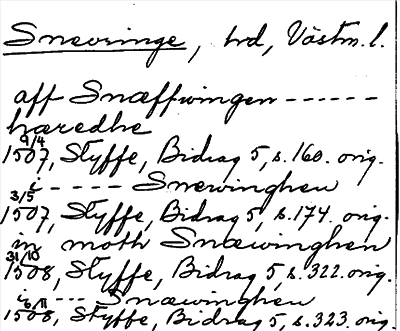 Snevringe, hd, Västm. l.
aff Snæffwingen ------
hæredhe
9/4
1507, Styffe, Bidrag 5, s. 160. orig.
i ----- Snewinghen
3/5
1507, Styffe, Bidrag 5, s. 174. orig.
in moth Snæwinghen
31/10
1508, Styffe, Bidrag 5, s. 322. orig.
i --- Snæwinghen
6/11
1508, Styffe, Bidrag 5, s. 323. orig.